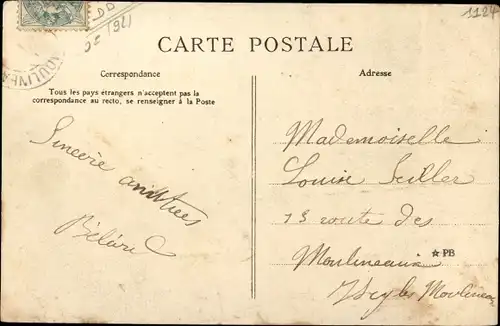 1124
CARTE POSTALE
Correspondance
Tous les pays étrangers n'acceptent pas la
correspondance au recto, se renseigner à la Poste
Adresse
Sincère amitiées
Mademoiselle
Louise
13 route des
Moulineaux
☆ PB
Issy les Moulineaux